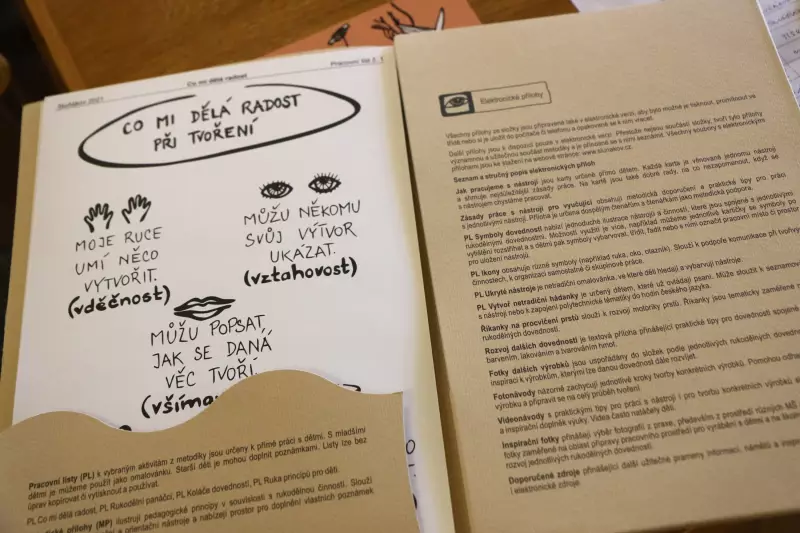 Co mi dělá radost
Pracovní list č. 1
Sluňákov 2021
CO MI DĚLÁ RADOST
PŘI TVOŘENÍ
MOJE RUCE
UMÍ NĚCO
VYTVOŘIT.
(vděčnost)
MŮŽU NĚKOMU
SVŮJ VÝTVOR
UKÁZAT.
(vztahovost)
MŮŽU POPSAT,
JAK SE DANÁ
VĚC TVOŘÍ.
Pracovní listy (PL) k vybraným aktivitám z metodiky jsou určeny k přímé práci s dětmi. S mladšími
dětmi je můžeme použít jako omalovánku. Starší děti je mohou doplnit poznámkami. Listy lze bez
úprav kopírovat či vytisknout a používat.
PL Co mi dělá radost, PL Rukodělní panáčci, PL Koláče dovedností, PL Ruka principů pro děti.
přílohy (MP) ilustrují pedagogické principy v souvislosti s rukodělnou činností. Slouží
orientační nástroje a nabízejí prostor pro doplnění vlastních poznámek
Elektronické přílohy
Všechny přílohy ze složky jsou připravené také v elektronické verzi, aby bylo možné je tisknout, promítnout ve
třídě nebo si je uložit do počítače či telefonu a opakovaně se k nim vracet.
Další přílohy jsou k dispozici pouze v elektronické verzi. Přestože nejsou součástí složky, tvoří tyto přílohy
významnou a užitečnou součást metodiky a je příhodné se s nimi seznámit. Všechny soubory s elektronickým
přílohami jsou ke stažení na webové stránce: www.slunakov.cz.
Seznam a stručný popis elektronických příloh
Jak pracujeme s nástroji jsou karty určené přímo dětem. Každá karta je věnovaná jednomu nástroji
a shrnuje nejdůležitější zásady práce. Na kartě jsou také dobré rady, na co nezapomenout, když se
s nástrojem chystáme pracovat.
Zásady práce s nástroji pro vyučující obsahují metodická doporučení a praktické tipy pro práci
s jednotlivými nástroji. Příloha je určena dospělým čtenářům a čtenářkám jako metodická podpora.
PL Symboly dovedností nabízí jednoduché ilustrace nástrojů a činností, které jsou spojené s jednotlivými
rukodělnými dovednostmi. Možností využití je více, například můžeme jednotlivé kartičky se symboly po
vytištění rozstříhat a s dětmi pak symboly vybarvovat, třídit, řadit nebo s nimi označit pracovní místo či prostor
pro uložení nástrojů.
PL Ikony obsahují různé symboly (například ruka, oko, otazník). Slouží k podpoře komunikace při tvořivých
činnostech, k organizaci samostatné či skupinové práce.
PL Ukryté nástroje je netradiční omalovánka, ve které děti hledají a vybarvují nástroje.
PL Vytvoř netradiční hádanky je určený dětem, které už ovládají psaní. Může sloužit k seznamování
s nástroji nebo k zapojení polytechnické tématiky do hodin českého jazyka.
Říkanky na procvičení prstů slouží k rozvoji motoriky prstů. Říkanky jsou tematicky zaměřené
rukodělných dovedností.
Rozvoj dalších dovedností je textová příloha přinášející praktické tipy pro dovednosti spojené
barvením, lakováním a tvarováním hmot.
Fotky dalších výrobků jsou uspořádány do složek podle jednotlivých rukodělných dovedností
inspiraci k výrobkům, kterými lze danou dovednost dále rozvíjet.
Fotonávody názorně zachycují jednotlivé kroky tvorby konkrétních výrobků. Pomohou odhad
výrobku a připravit se na celý průběh tvoření.
Videonávody s praktickými tipy pro práci s nástroji i pro tvorbu konkrétních výrobků
a inspirační doplněk výuky. Videa často natáčely děti.
Inspirační fotky přinášejí výběr fotografií z praxe, především z prostředí různých MŠ
fotky zaměřené na oblast přípravy pracovního prostředí pro vyrábění s dětmi a na škol
rozvoj jednotlivých rukodělných dovedností.
Doporučené zdroje přinášející další užitečné prameny informací, námětů a inspirace
i elektronické zdroje.